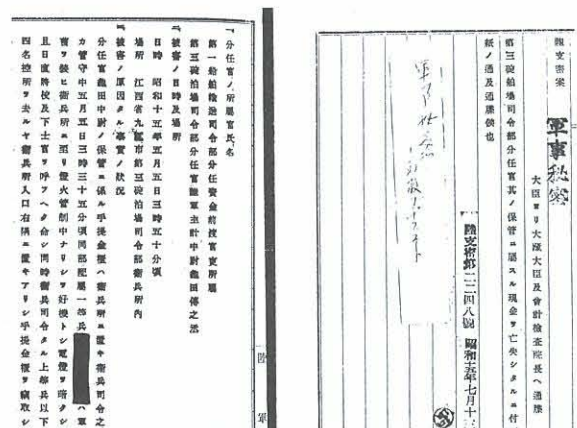 陸支密案
軍事秘密
大臣ヨリ大蔵大臣及會計檢査院長ヘ通牒
第三碇泊場司令部分任官其ノ保管ニ屬スル現金ヲ亡失シタルニ付
紙ノ通及通牒候也
陸支密第二二四八號 昭和十五年七月十三
一、分任官ノ所屬官氏名
第一船舶輸送司令部分任資金前渡官吏所屬
第三碇泊場司令部分任官陸軍主計中尉龜田傳之丞
二、被害ノ日時及場所
日時 昭和十五年五月五日三時五十分頃
場所 江西省九江市第三碇泊場司令部衞兵所內
三、被害ノ原因タル事實ノ狀況
分任官龜田中尉ノ保管ニ係ル手提金櫃ハ衞兵所ニ置キ衞兵司令之
カ管守中五月五日三時三十五分頃同部配屬一等兵 ハ軍
前ヲ裝ヒ衞兵所ニ至リ燈火管制中ナリシヲ好機トシ電燈ヲ暗クシ
且日直將校及下士官ヲ呼フヘク命シ同時衞兵司令タル上等兵以下
四名控所ヲ去ルヤ衞兵所入口右隅ニ置キアリシ手提金櫃ヲ竊取シ
陸
軍